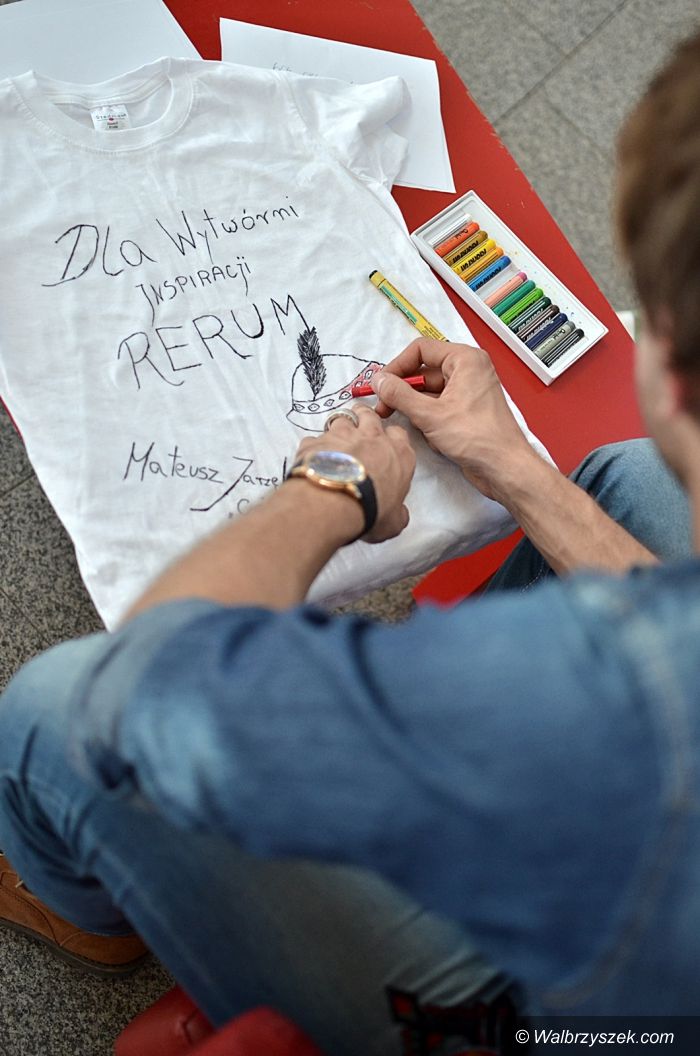 Dla Wytwórni
INSPIRACJI
RERUM
Mateusz
© Walbrzyszek.com